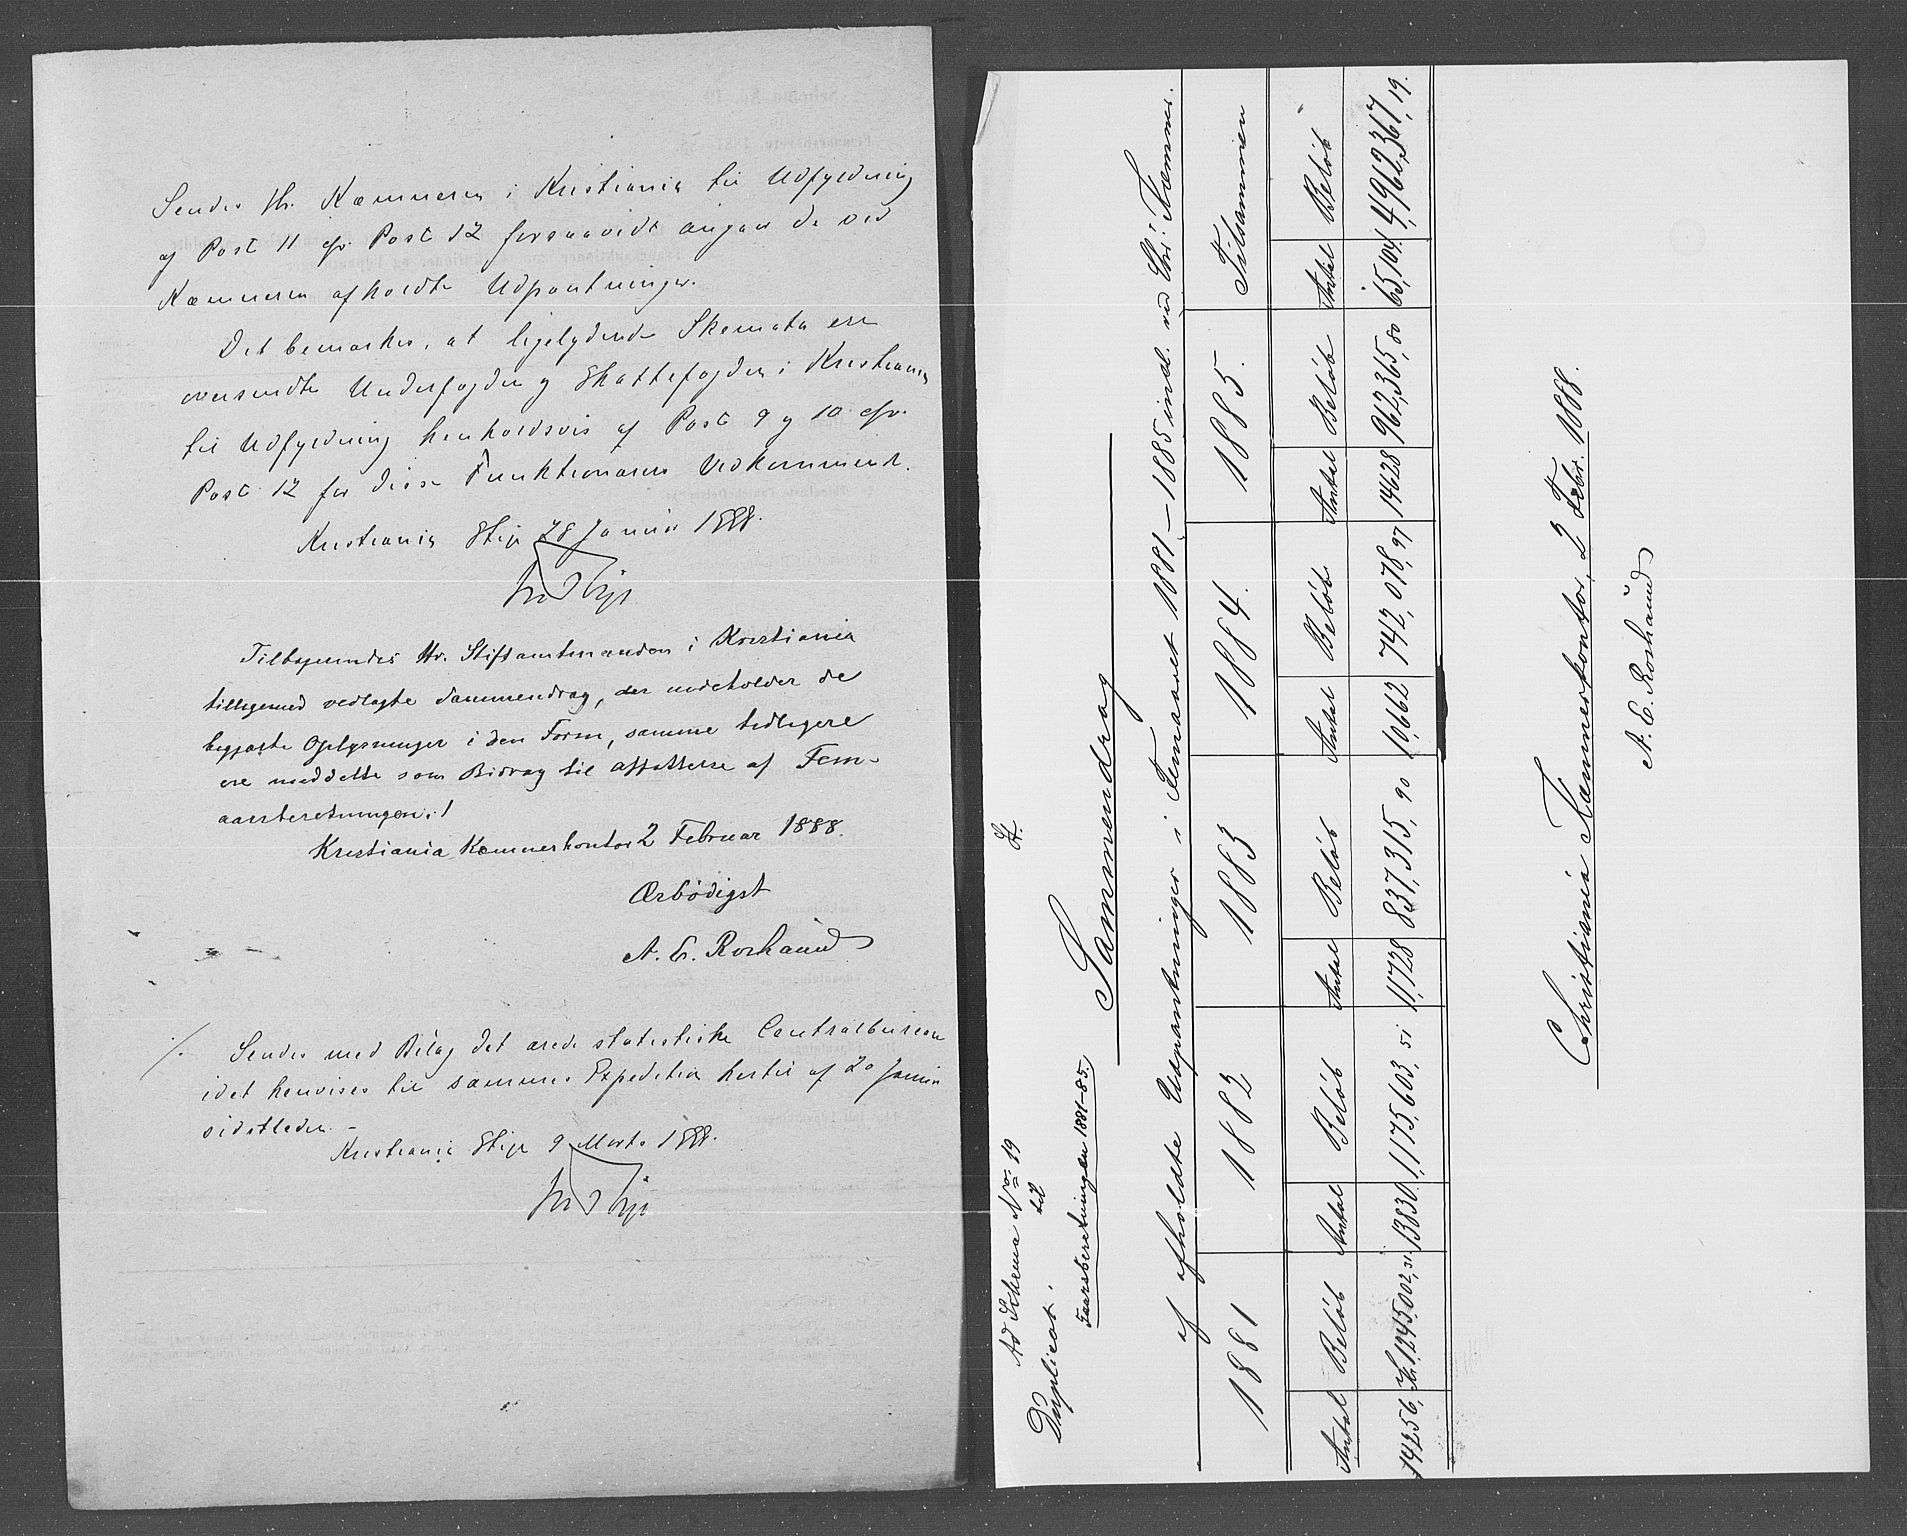 Sendes Hr. Kæmneren i Kristiania til Udfyldning
af Post 11 cfr. Post 12 forsaavidt angaar de ved
Kæmneren afholdte Udpantninger.
Det bemærkes, at ligelydende Skemata ere
oversendte Underfogden og Skattefogden i Kristiania
til Udfyldning henholdsvis af Post 9 og 10 cfr.
Post 12 for disse Funktionærers Vedkommende.
Kristiania Stip 28 Januar 1888.
Tilbagesendes Hr. Stiftamtmanden i Kristiania
tilligemed vedlagte Sammendrag, der indeholder de
begjærte Oplysninger i den Form, samme tidligere
ere meddelte som Bidrag til Affattelse af Fem-
aarsberetningen.
Kristiania Kæmnerkontor 2 Februar 1888.
Ærbødigst
A. E. Roshauw
./. Sendes med Bilag det ærede statistiske Centralbureau
idet henvises til sammes Expedition hertil af 20 Januar
sidstleden. -
Kristiania Stip 9 Marts 1888.
Ad Schema No. 19
til
Duplicat.
Faarsberetningen 1881-85.
Sammendrag
af afholdte Udpantninger i Femaaret 1881 - 1885 incl. ved Chr: Kæmner.
1881 1882 1883 1884. 1885. Tilsammen
Antal Beløb Antal Beløb Antal Beløb Antal Beløb Antal Beløb Antal Beløb
14256, Kr. 1245,002,31 13830, 1,175,603,51 11,728 837,315,90 10,662 742,078,97 14628 962,365,80 65,104 4,962,367,19.
Christiania Kæmnerkontor, 2 Febr. 1888.
A. E. Roshauw